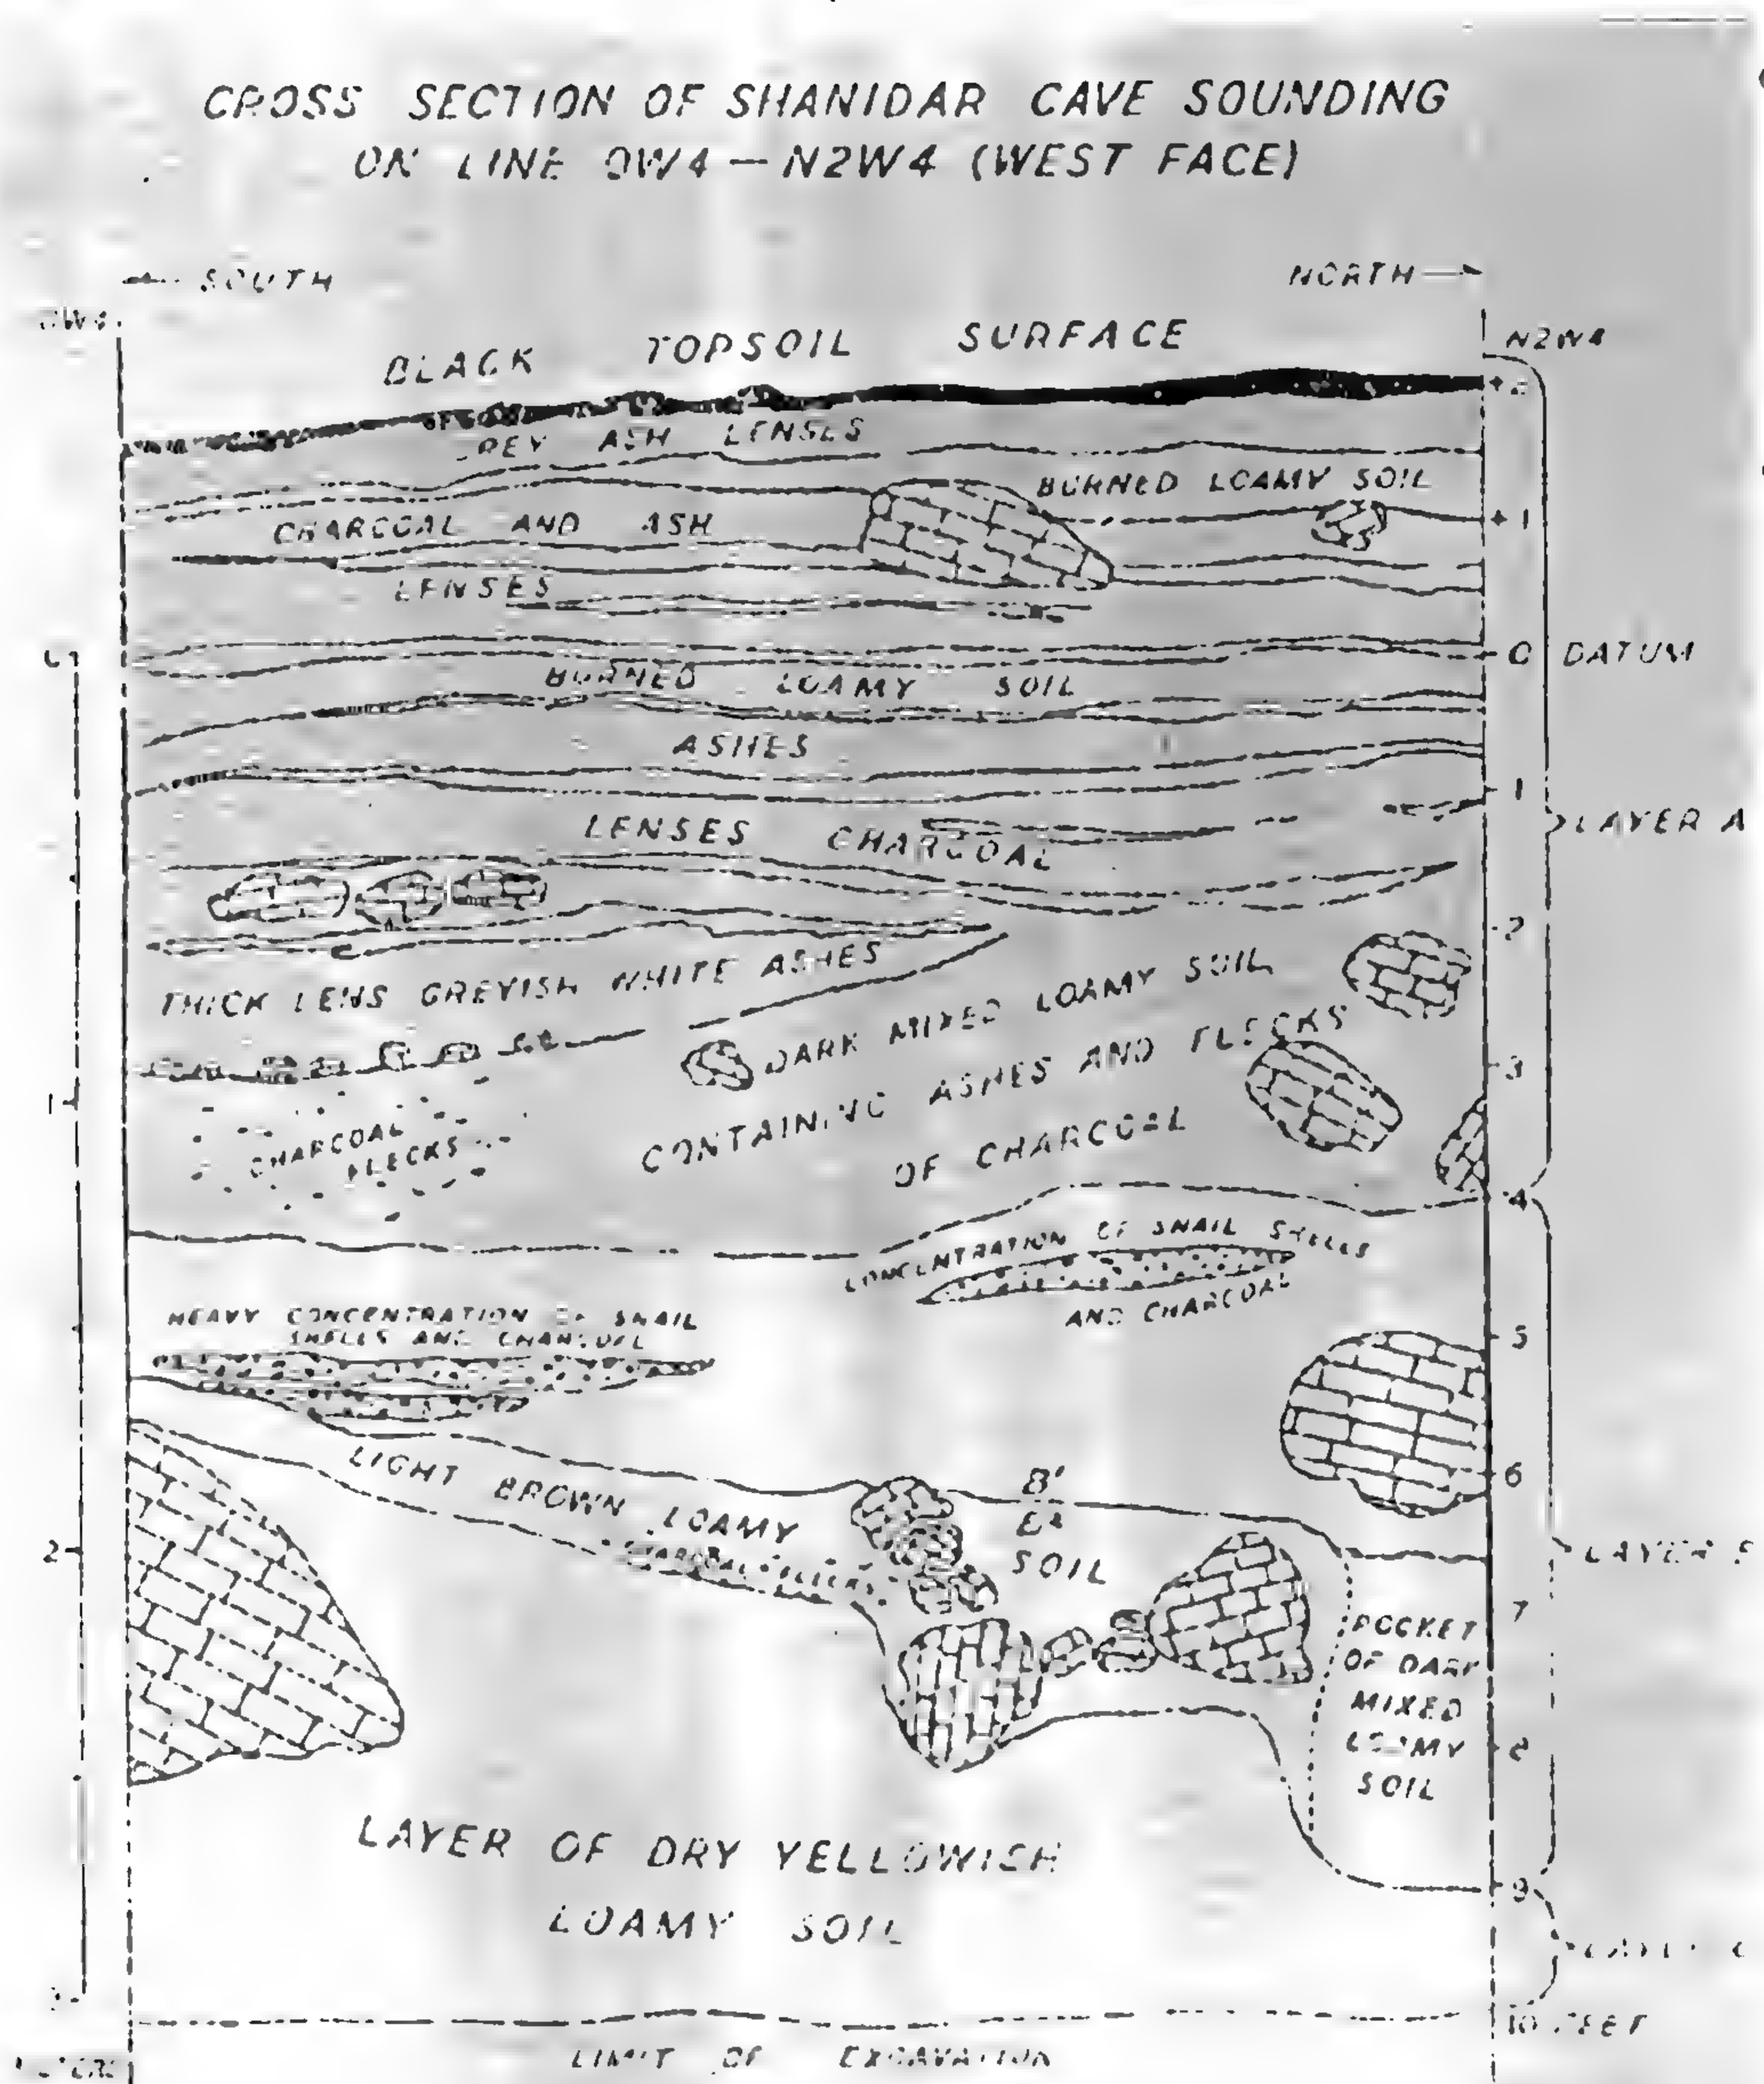 CROSS SECTION OF SHANIDAR CAVE SOUNDING
ON LINE 0W4 — N2W4 (WEST FACE)
SOUTH
NORTH
0W4
N2W4
BLACK TOPSOIL SURFACE
+2
GREY ASH LENSES
BURNED LOAMY SOIL
CHARCOAL AND ASH
+1
LENSES
0
0 DATUM
BURNED LOAMY SOIL
ASHES
1
LENSES CHARCOAL
LAYER A
2
THICK LENS GREYISH WHITE ASHES
DARK MIXED LOAMY SOIL
3
CONTAINING ASHES AND FLECKS
1
CHARCOAL
FLECKS
OF CHARCOAL
4
CONCENTRATION OF SNAIL SHELLS
AND CHARCOAL
HEAVY CONCENTRATION OF SNAIL
SHELLS AND CHARCOAL
5
LIGHT BROWN LOAMY
B'
6
SOIL
CHARCOAL FLECKS
2
LAYER
7
POCKET
OF DARK
MIXED
LOAMY
SOIL
8
LAYER OF DRY YELLOWISH
LOAMY SOIL
9
LAYER C
3
10 FEET
METERS
LIMIT OF EXCAVATION